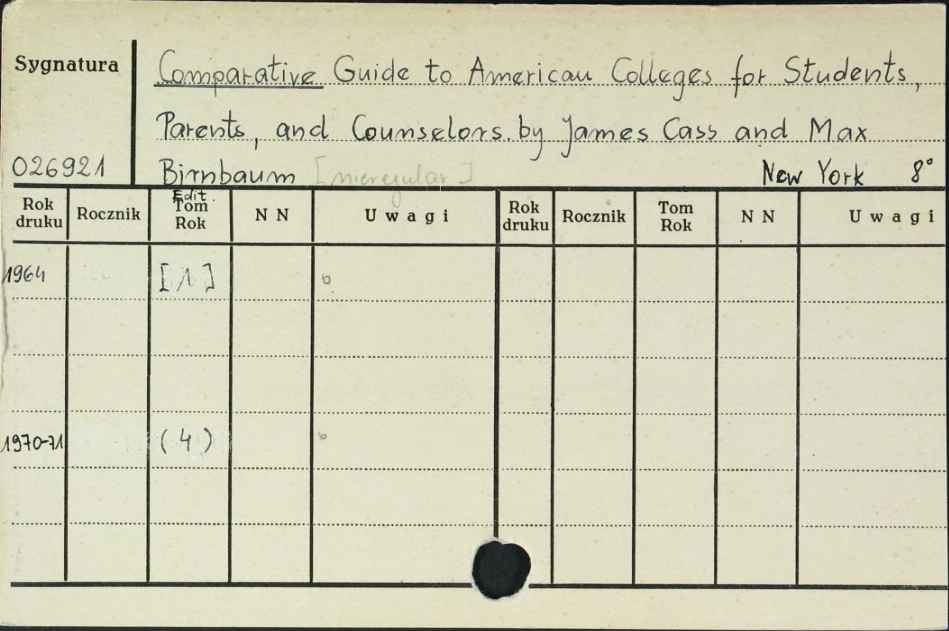 Sygnatura
Comparative Guide to American Colleges for Students,
Parents, and Counselors. by James Cass and Max
026921 Birnbaum [nieregular] New York 8°
Rok druku Rocznik Edit. Tom Rok N N Uwagi Rok druku Rocznik Tom Rok N N Uwagi
1964 [1] b
1970-71 (4) b